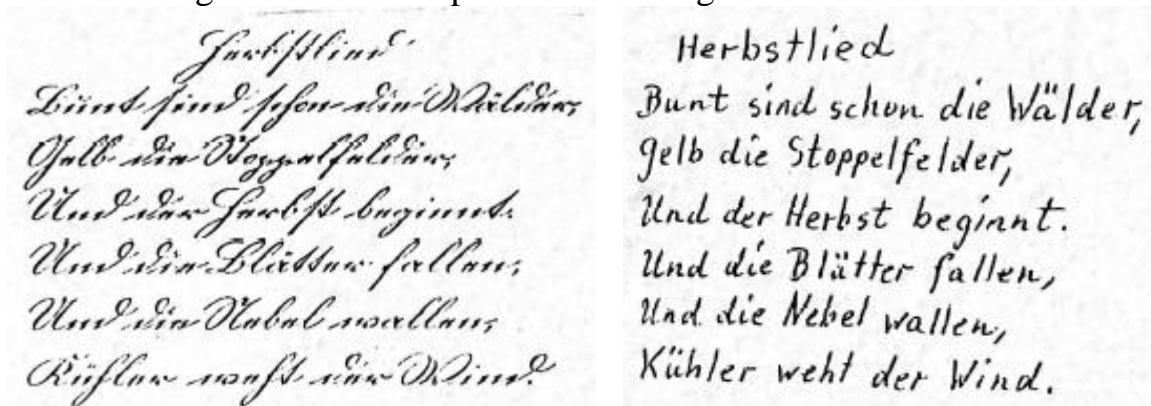 Herbstlied
Bunt sind schon die Wälder,
Gelb die Stoppelfelder,
Und der Herbst beginnt.
Und die Blätter fallen,
Und die Nebel wallen,
Kühler weht der Wind.
Herbstlied
Bunt sind schon die Wälder,
gelb die Stoppelfelder,
Und der Herbst beginnt.
Und die Blätter fallen,
Und die Nebel wallen,
Kühler weht der Wind.